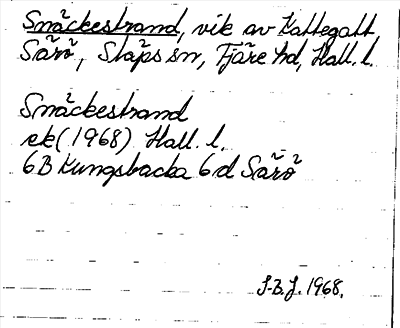 Snäckestrand, vik av Kattegatt,
Särö, Släps sn, Fjäre hd, Hall. l.
Snäckestrand
ek (1968) Hall. l.
6B Kungsbacka 6d Särö
S.B.J. 1968.